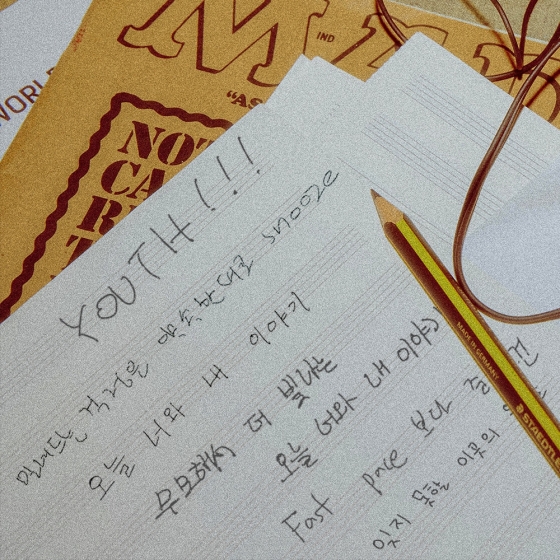 WORL
IND
“AS
NOT
CA
YOUTH!!!
밀려드는 걱정은 약속한대로 snooze
오늘 너와 내 이야기
무모해서 더 빛나는
오늘 너와 내 이야기
Fast pace 보다
잊지 못할 이곳의
MADE IN GERMANY
STAEDTL